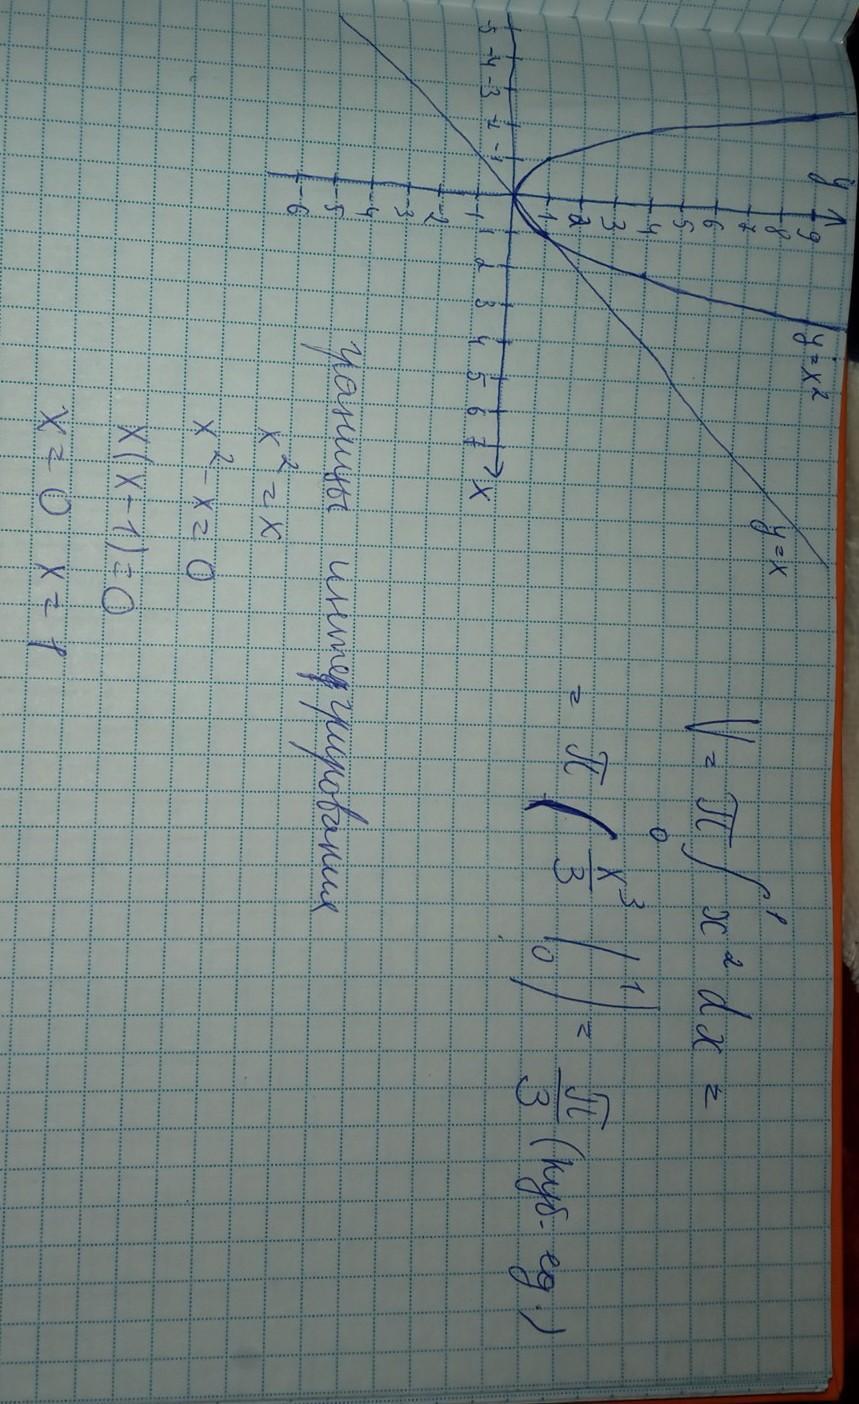 y
9
8
7
6
5
4
3
2
1
-5 -4 -3 -2 -1 1 2 3 4 5 6 7 x
-1
-2
-3
-4
-5
-6
y=x²
y=x
V = π ∫₀¹ x² dx =
= π ( x³/3 |₀¹ ) = π/3 (куб. ед.)
границы интегрирования
x² = x
x² - x = 0
x(x-1)=0
x = 0 x = 1